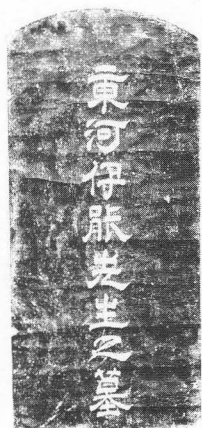 東河伊滕先生之墓